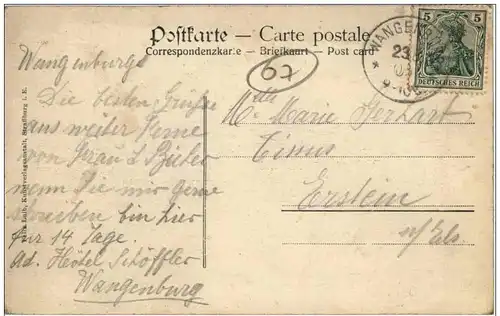 Postkarte – Carte postale
Correspondenzkarte – Briefkaart – Post card
67
WANGENB
23
5 5
DEUTSCHES REICH
Wangenburg
Die besten Grüße
aus weiter Ferne
von
wenn Sie mir gerne
schreiben bin hier
für 14 Tage.
ad. Hôtel Schöffler
Wangenburg
Mlle Marie Gerhart
Erstein
n/Els
Kunstverlagsanstalt, Straßburg i. E.